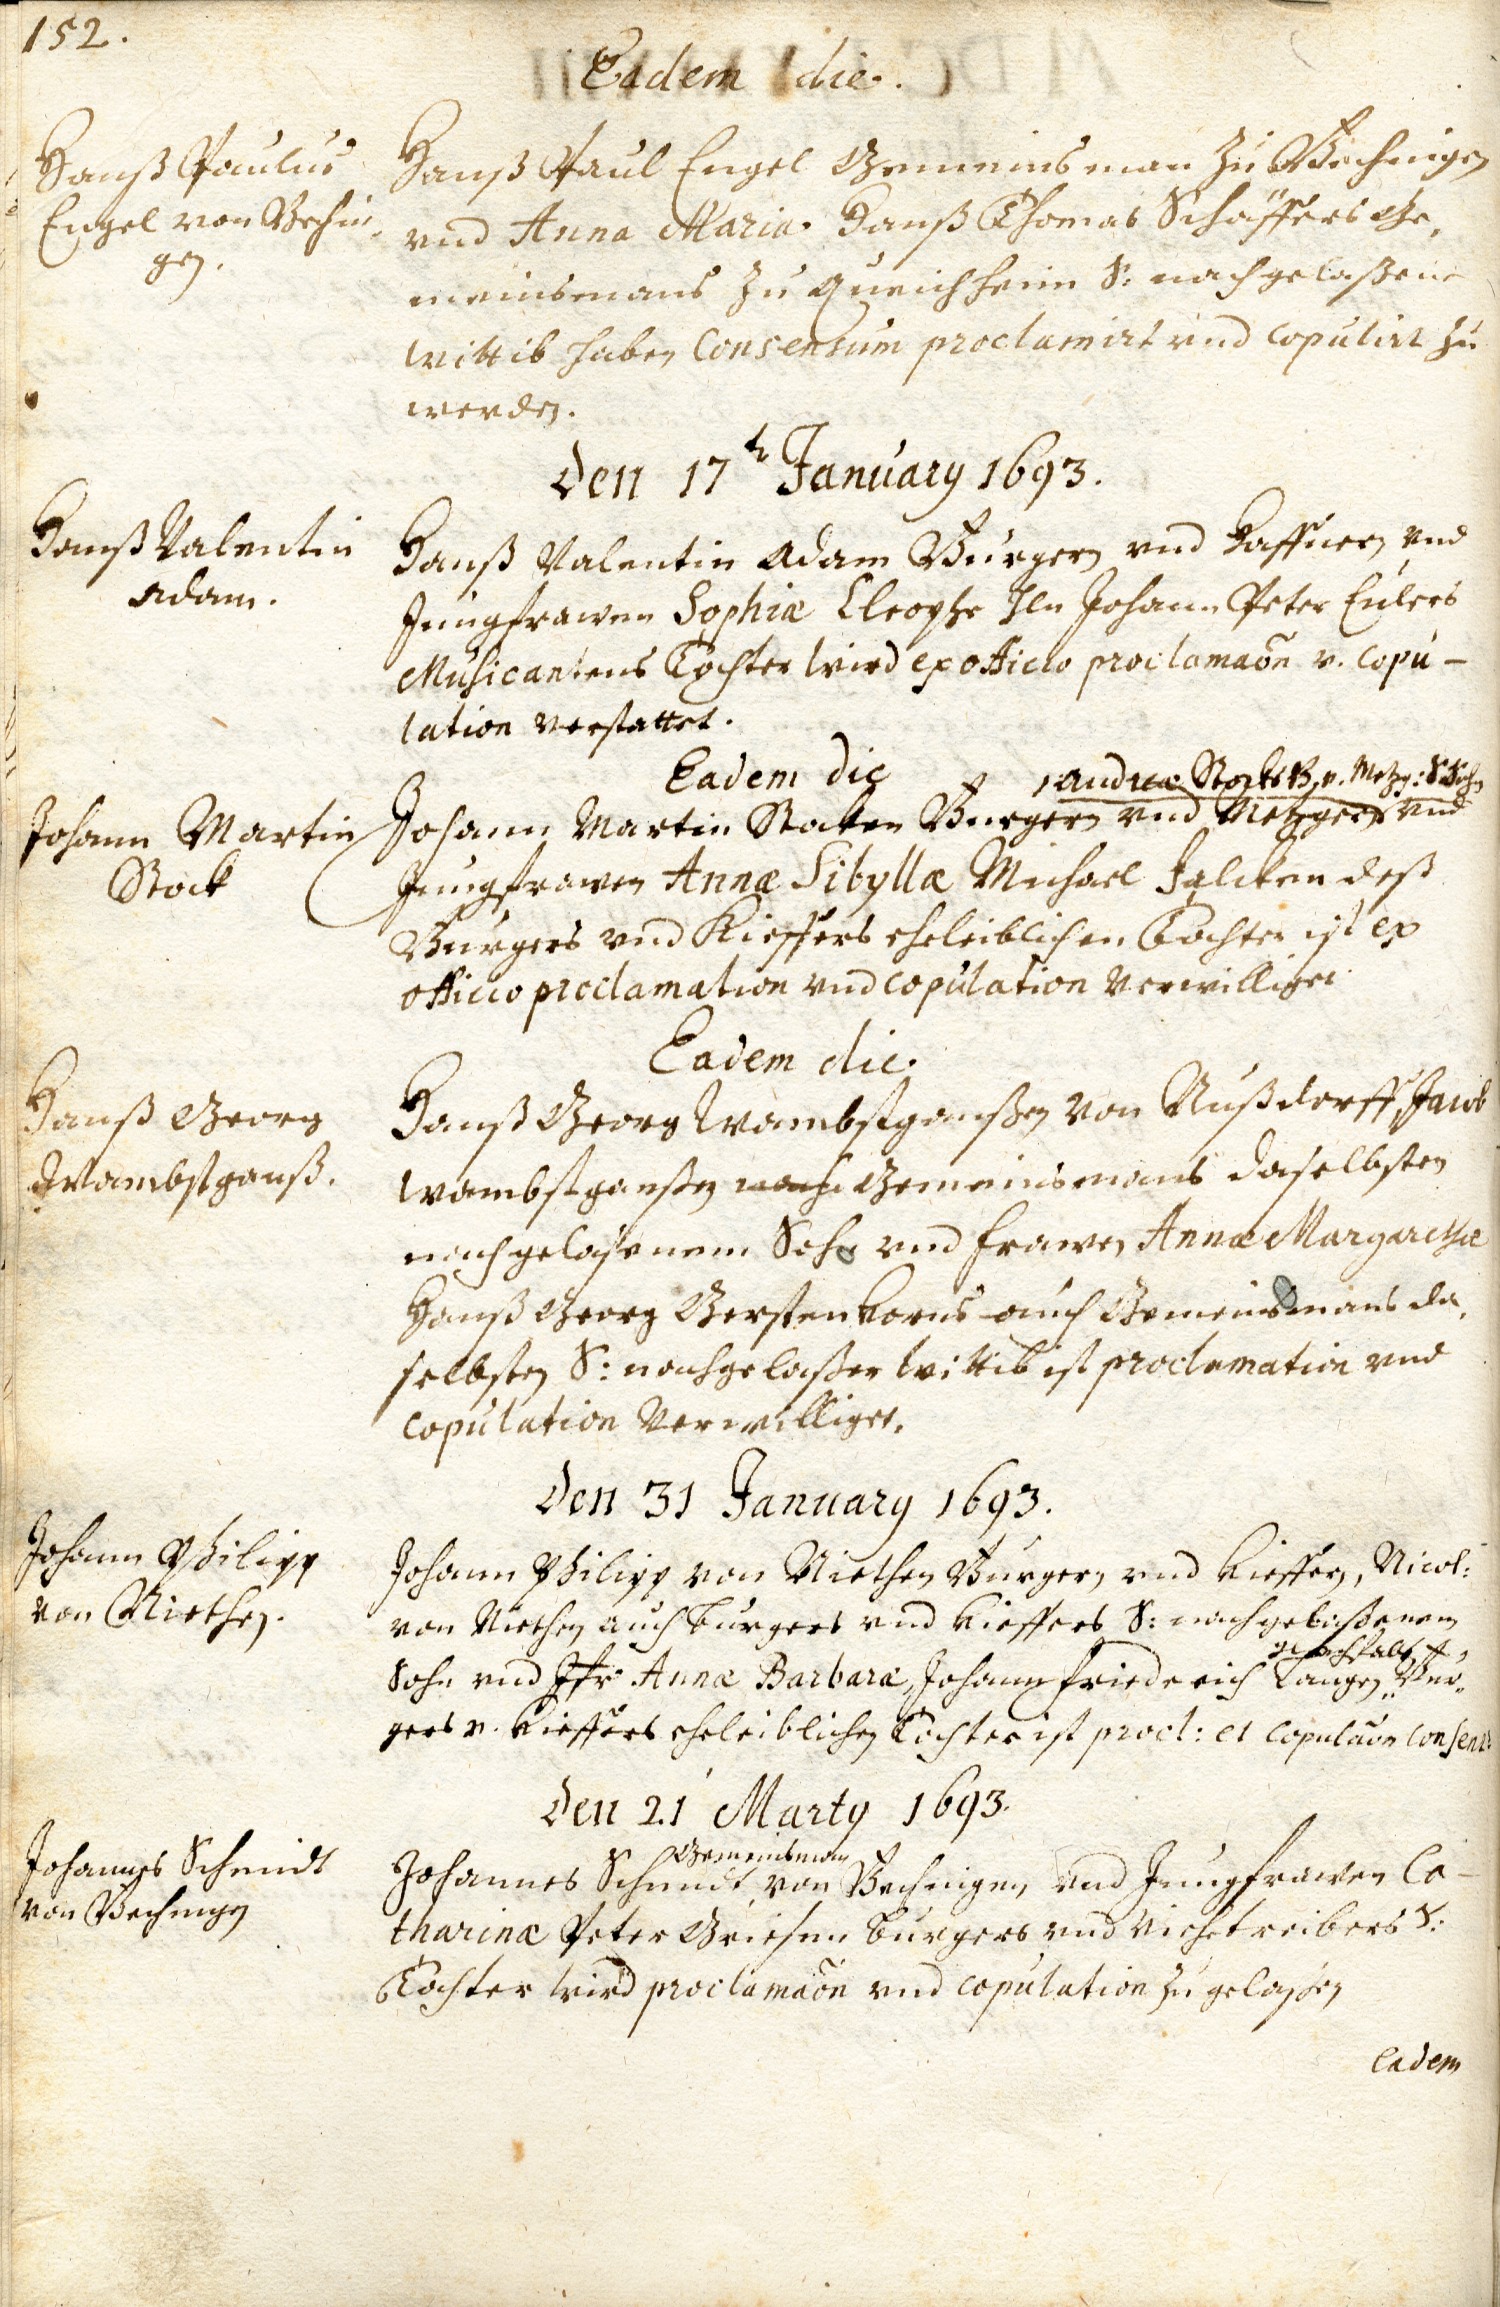 152.
Eadem die.
Hanß Paulus
Engel von Bechin,
gen.
Hanß Paul Engel Gemeinsman zu Bechingen
und Anna Maria. Hanß Thomas Schäffers Ge,
meinsmans zu Queichheim S: nachgelaßene
Wittib haben Consensum proclamirt und copulirt zu
werden.
Den 17t January 1693.
Hanß Valentin
Adam.
Hanß Valentin Adam Burgern und Haffnern und
Jungfrawen Sophiæ Cleophe Johann Peter Eulers
Musicantens Tochter wird ex officio proclamaõn v. copu-
lation verstattet.
Eadem die
Johann Martin
Stock
, Andreæ Stocks B. v. Metzg: S. Sohn
Johann Martin Stocken Burgern und Metzgern und
Jungfrawen Annæ Sibyllæ Michael Falcken deß
Burgers und Kieffers eheleiblichen Tochter ist ex
officio proclamation und copulation verwilliget.
Eadem die.
Hanß Georg
Wambstganß.
Hanß Georg Wambstganßen von Nußdorff, Jacob
Wambstganßen Gemeinsmans daselbsten
nachgelaßenem Sohn und Frawen Annæ Margarethæ
Hanß Georg Gerstenkorns auch Gemeinsmans da,
selbsten S: nachgelaßen Wittib ist proclamation und
copulation verwilliget.
Den 31 January 1693.
Johann Philipp
von Niethen.
Johann Philipp von Niethen Burgern und Kieffern, Nicol:
von Niethen auch Burgers und Kieffers S: nachgelaßenem
gleichfalls
Sohn und Jfr Annæ Barbaræ, Johann Friederich Langen Bur,
gers v. Kieffers eheleiblichen Tochter ist procl: et copulaõn consent:
Den 21 Marty 1693.
Johannes Schmidt
von Bechingen
Gemeinsman
Johannes Schmidt von Bechingen und Jungfrawen Ca-
tharinæ Peter Griesen Burgers und Viehetreibers S:
Tochter wird proclamaõn und copulation zugelaßen
Eadem